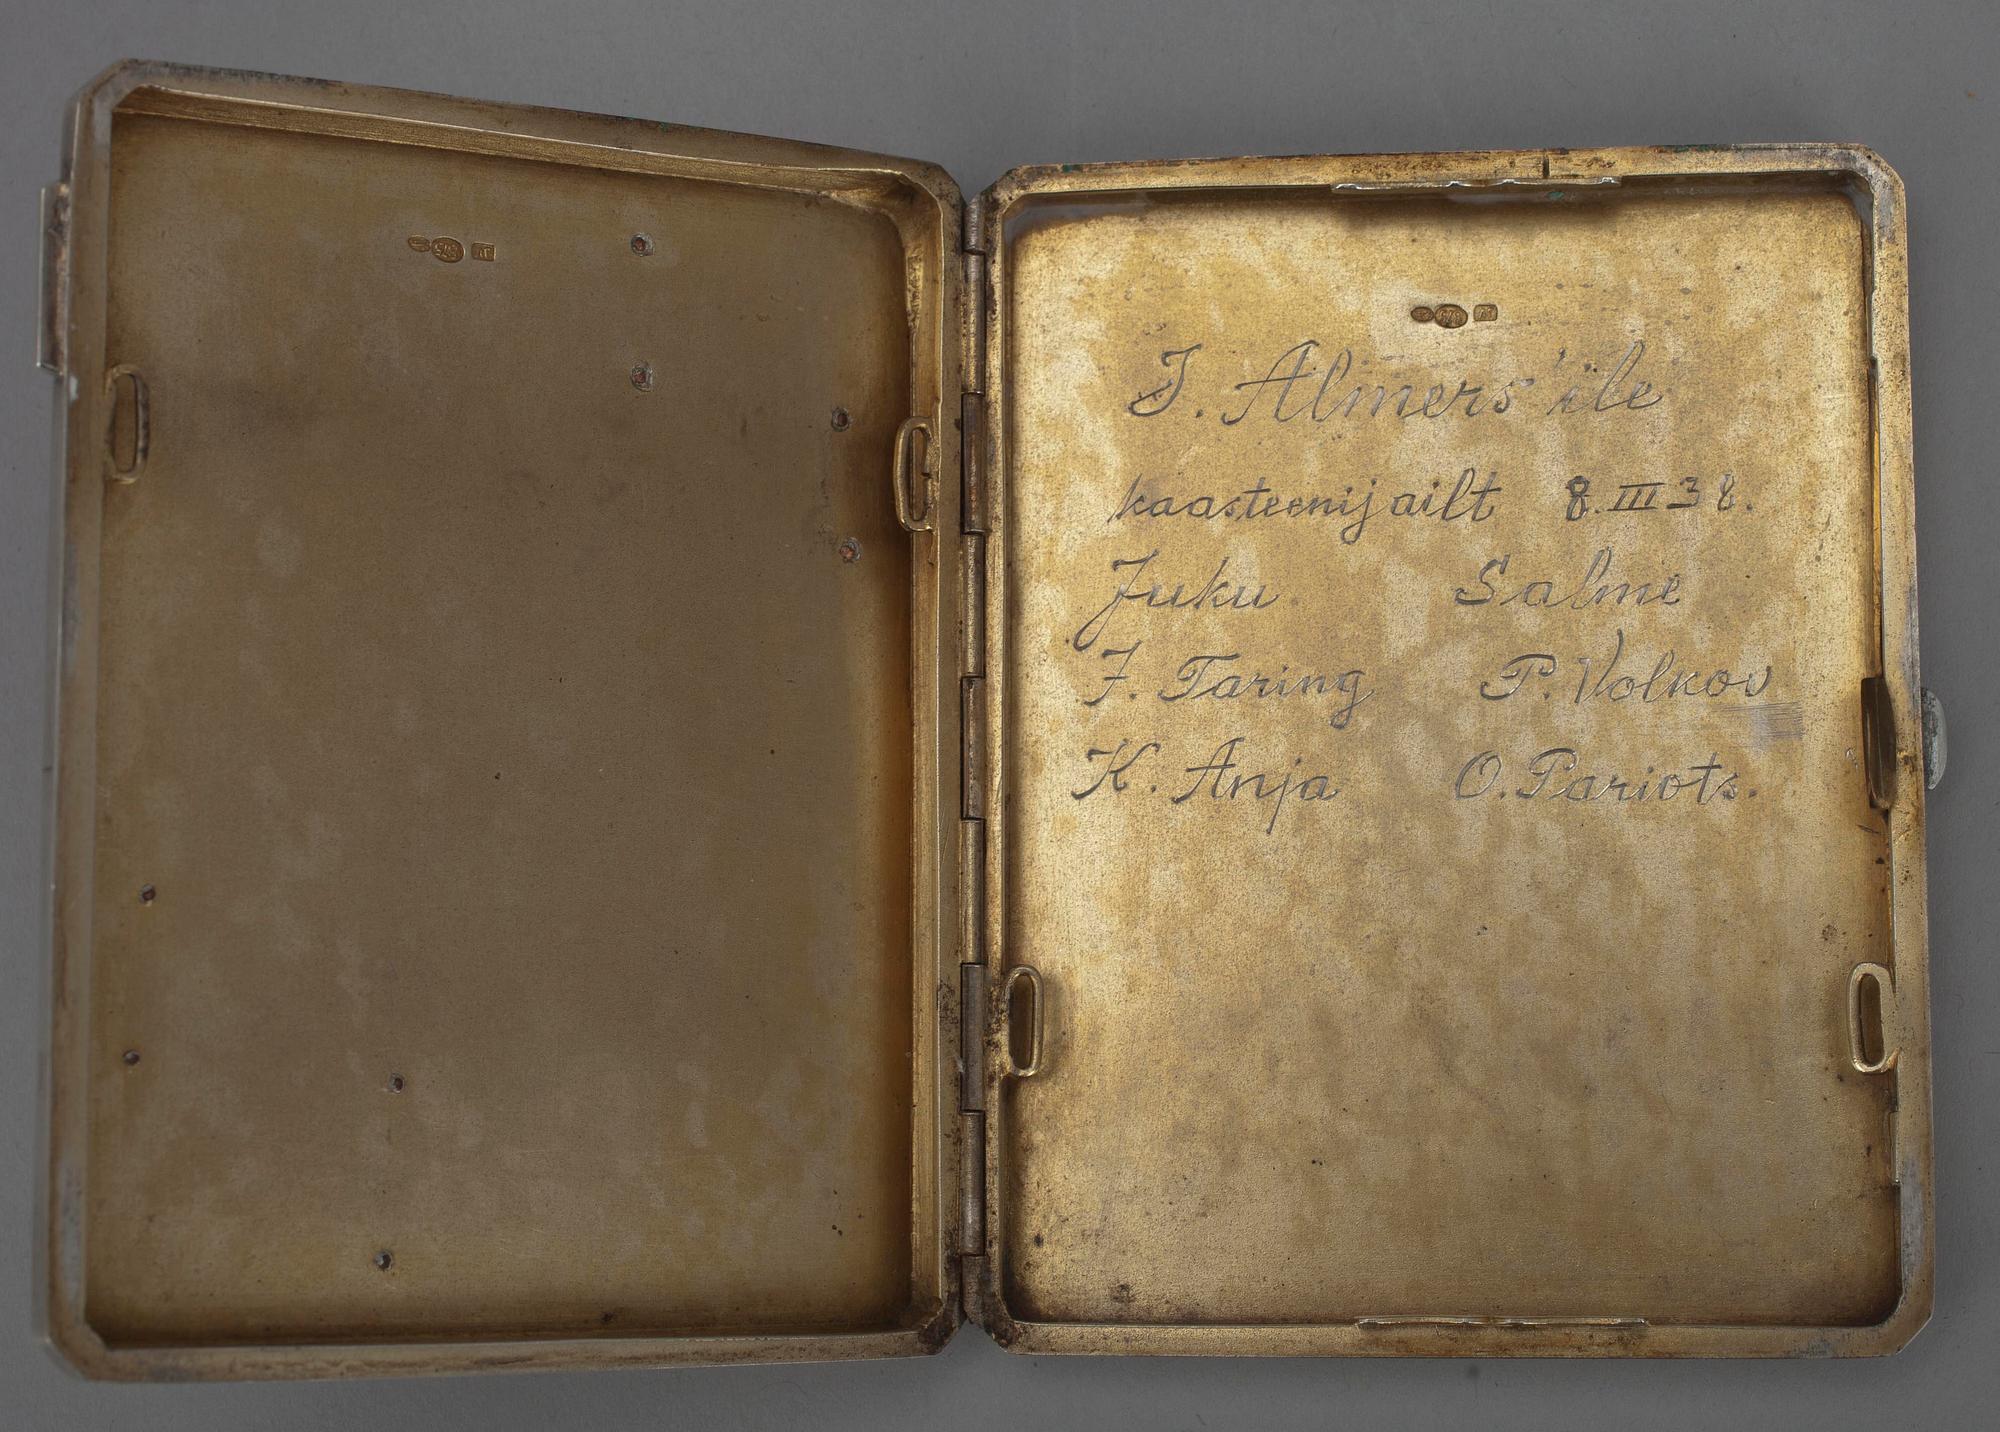 875
875
J. Almers'ile
kaasteenijailt 8.III 38.
Juku Salme
J. Taring P. Volkov
K. Anja O. Pariots.